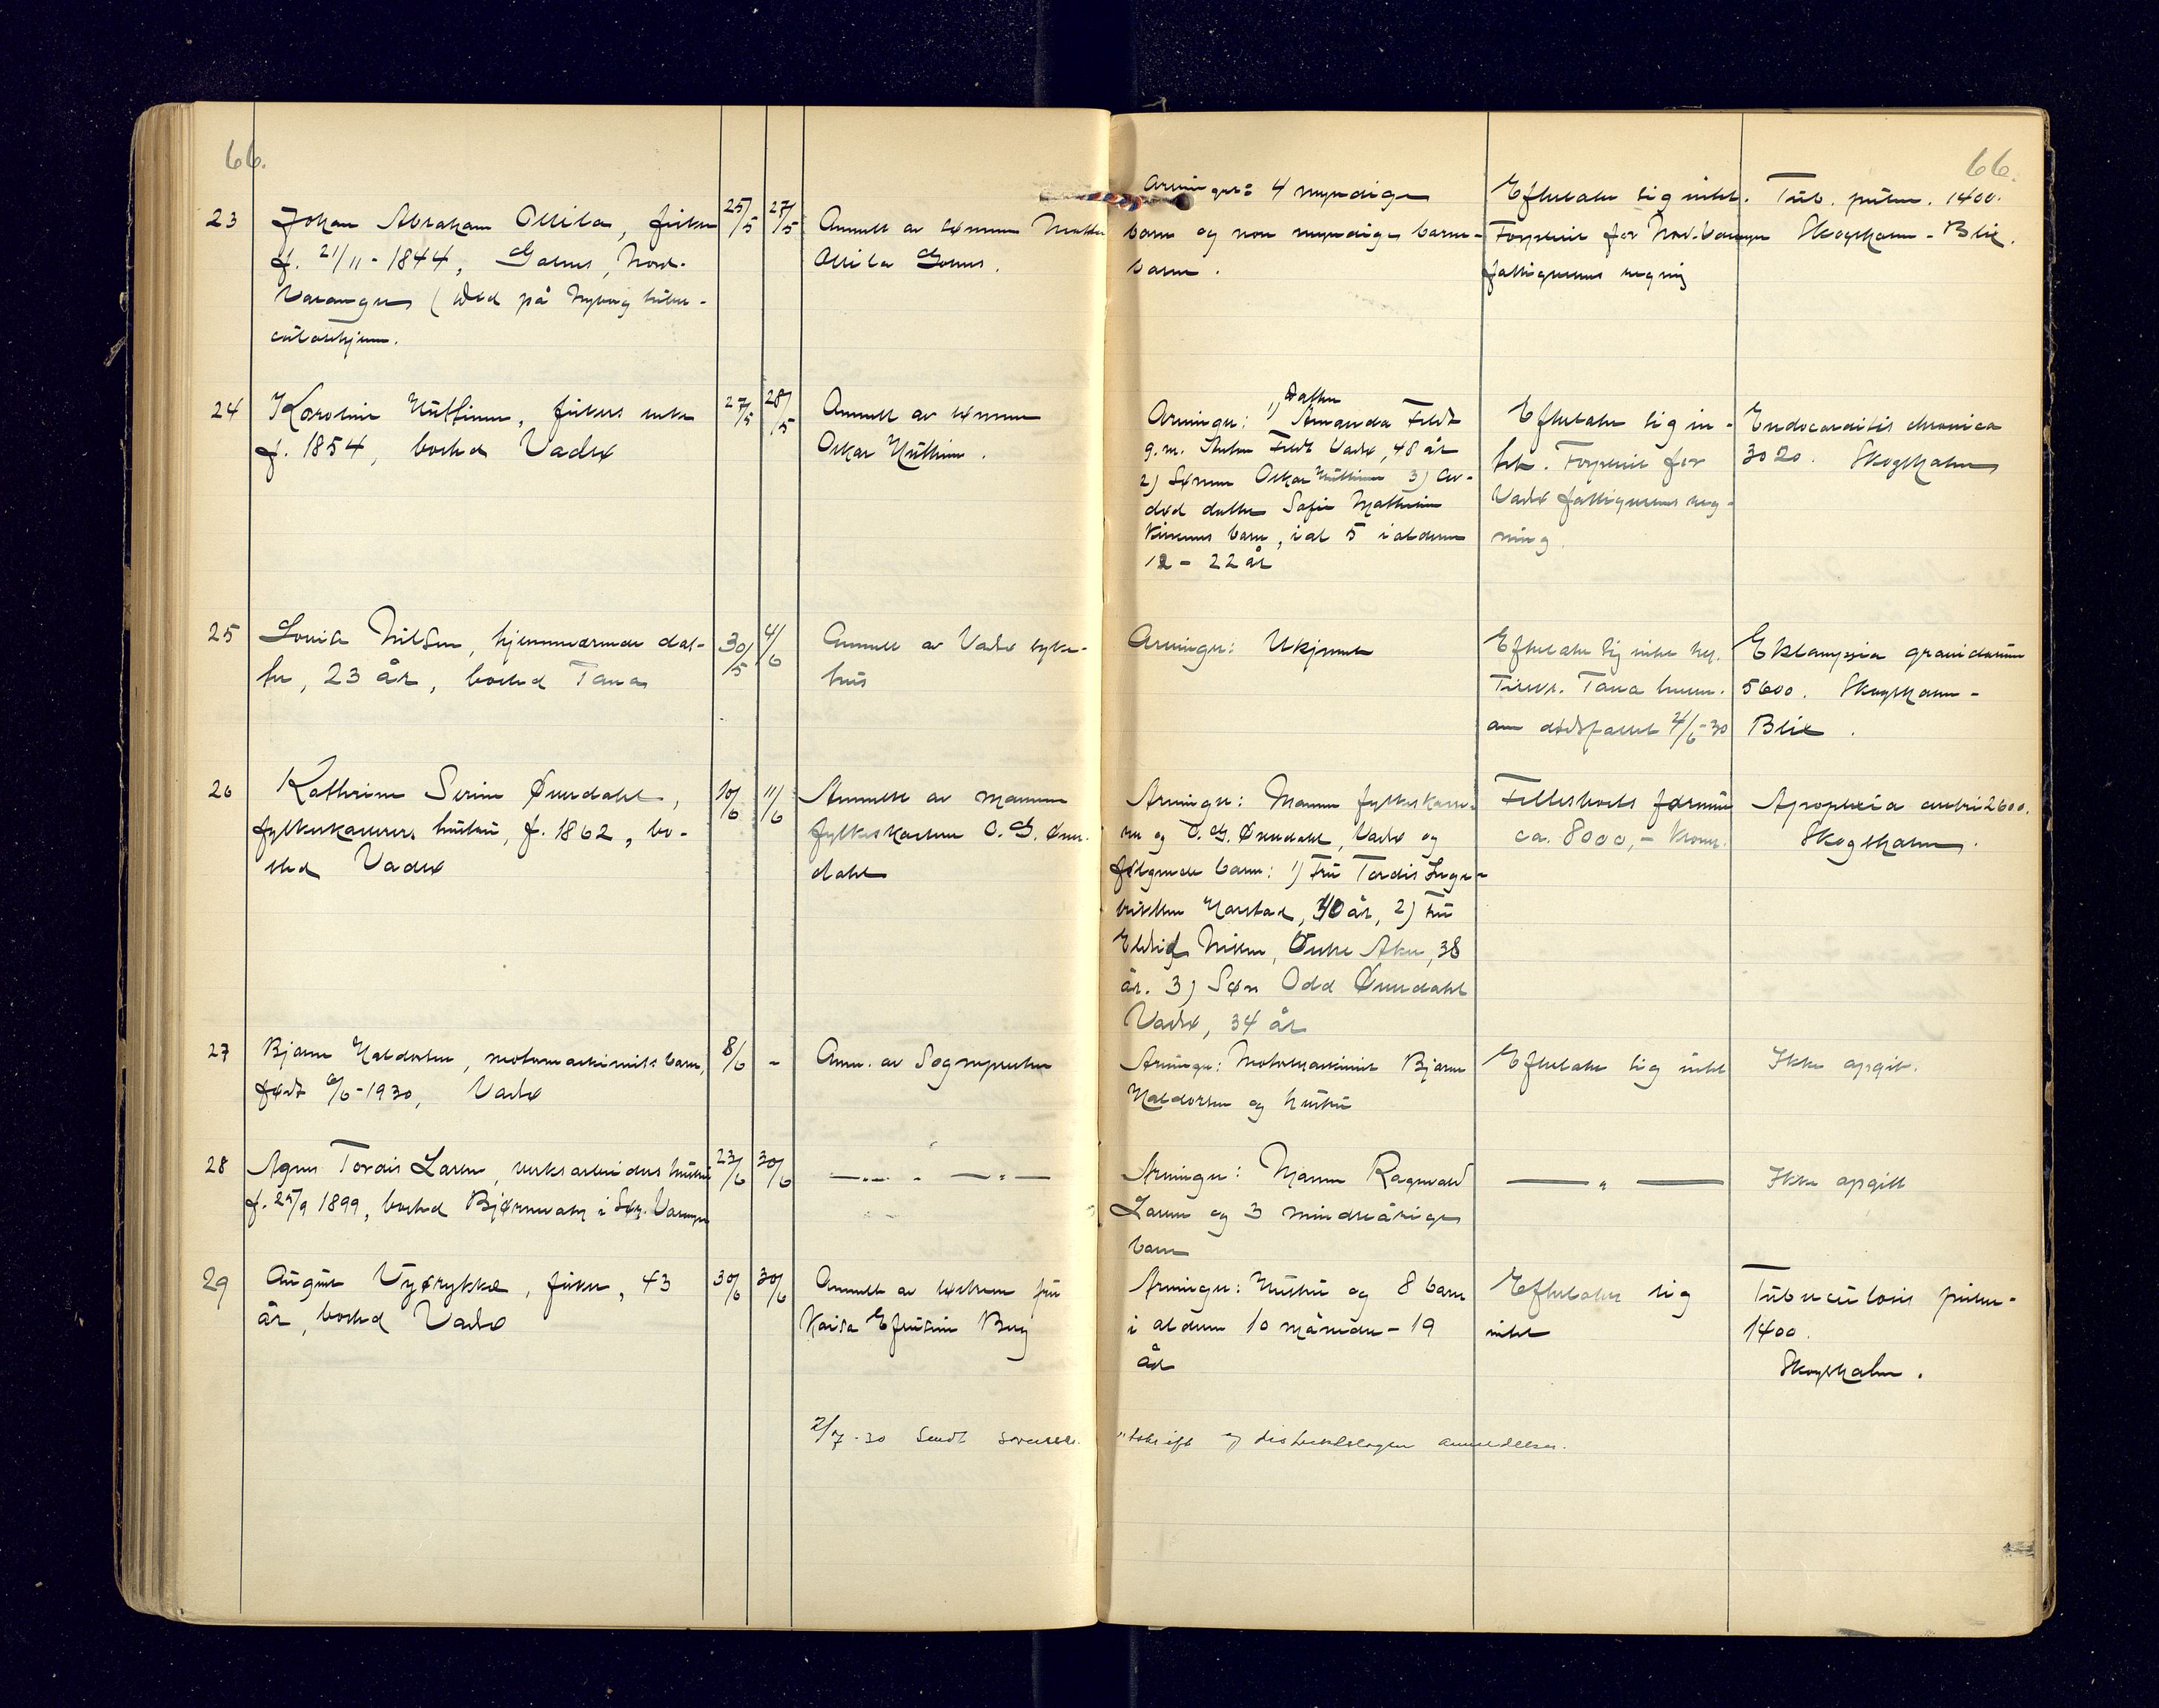 66.
66.
23
Johan Abraham Ollila, fisker
f. 21/11 - 1844, Golnes, Nord-
Varanger (død på Nyborg tuber-
culosehjem.
25/5
27/5
Anmelt av sønnen
Ollila Golnes.
Arvinger: 4 myndige
barn og non myndige barne-
barn.
Efterlater sig intet.
Forpleiet for Nord-Varanger
fattigvesens regning
Tub. pulm. 1400.
Skogsholm - Blix.
24
Karoline Huttinen, fiskers enke
f. 1854, bosted Vadsø
27/5
28/5
Anmelt av sønnen
Oskar Huttinen.
Datter
Arvinger: 1) Amanda Feldt
g.m. Feldt Vadsø, 48 år
2) Sønnen Oskar Huttinen 3) av-
død datter Sofie Mathisen
barn, ialt 5 i alderen
12 - 22 år
Efterlater sig in-
tet. Forpleiet for
Vadsø fattigvesens reg-
ning.
Endocarditis chronica
3020. Skogsholm
25
Lovisa Nilsen, hjemmeværende dat-
ter, 23 år, bosted Tana
30/5
4/6
Anmelt av Vadsø syke-
hus
Arvinger: Ukjent
Efterlater sig intet
Tana
om dødsfallet 4/6-30
Eklampsia gravidarum
5600. Skogsholm -
Blix.
26
Kathrine Serine Ørnedahl,
fylkeskasserers hustru, f. 1862, bo-
sted Vadsø
10/6
11/6
Anmeldt av mannen
fylkeskasserer O. G. Ørne-
dahl
Arvinger: Mannen fylkeskasse-
rer O. G. Ørnedahl, Vadsø og
følgende barn: 1) Fru Tordis Inge-
brigtsen Harstad, 40 år, 2) Fru
Nilsen, Aker, 38
år. 3) Søn Odd Ørnedahl
Vadsø, 34 år
Fellesboets formue
ca. 8000,- kroner.
Apoplexia cerebri 2600.
Skogsholm.
27
Bjarne Haldorsen, motormaskinists barn,
født 6/6-1930, Vadsø
8/6
-
Anm. av Sognepresten
Arvinger: Motormaskinist Bjarne
Haldorsen og hustru
Efterlater sig intet
Ikke opgit.
28
Agnes Tordis Larsen, verksarbeiders hustru
f. 25/9 1899, bosted Bjørnevatn i Sør-Varanger
23/6
30/6
— " — " —
Arvinger: Mannen Ragnvald
Larsen og 3 mindreårige
barn
— " —
Ikke opgitt
29
August Vyørykkä, fisker, 43
år, bosted Vadsø
30/6
30/6
Anmelt av søsteren fru
Kaisa Efrosine Berg
Arvinger: Hustru og 8 barn
i alderen 10 måneder - 19
år
Efterlater sig
intet
Tuberculosis pulm-
1400.
Skogsholm.
2/7-30 Sendt utskrift og distriktslægen anmeldelser.